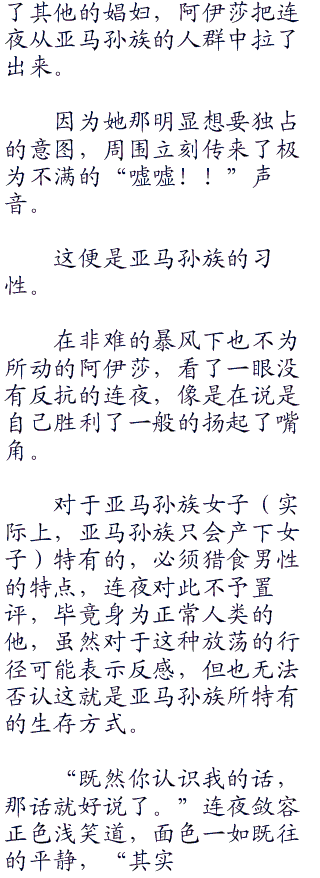 了其他的娼妇，阿伊莎把连
夜从亚马孙族的人群中拉了
出来。
因为她那明显想要独占
的意图，周围立刻传来了极
为不满的“嘘嘘！！”声
音。
这便是亚马孙族的习
性。
在非难的暴风下也不为
所动的阿伊莎，看了一眼没
有反抗的连夜，像是在说是
自己胜利了一般的扬起了嘴
角。
对于亚马孙族女子（实
际上，亚马孙族只会产下女
子）特有的，必须猎食男性
的特点，连夜对此不予置
评，毕竟身为正常人类的
他，虽然对于这种放荡的行
径可能表示反感，但也无法
否认这就是亚马孙族所特有
的生存方式。
“既然你认识我的话，
那话就好说了。”连夜敛容
正色浅笑道，面色一如既往
的平静，“其实